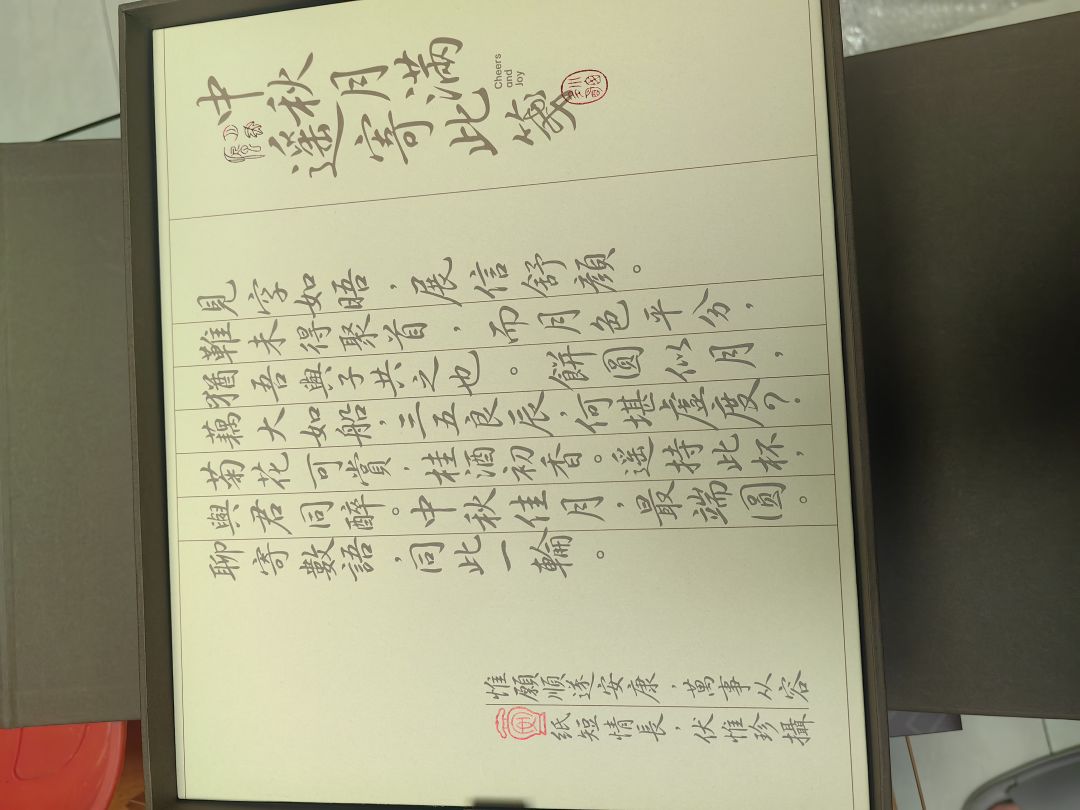 中秋月滿
遥寄此箋
Cheers
and
Joy
見字如晤，展信舒顏。
難未得聚首，而月色平分，
猶吾與子共之也。餅圓似月，
藕大如船，三五良辰，何堪虛度？
菊花可賞，桂酒初香。遥持此杯，
與君同醉。中秋佳月，最端圓。
聊寄數語，同此一輪。
惟願順遂安康，萬事从容
紙短情長，伏惟珍攝